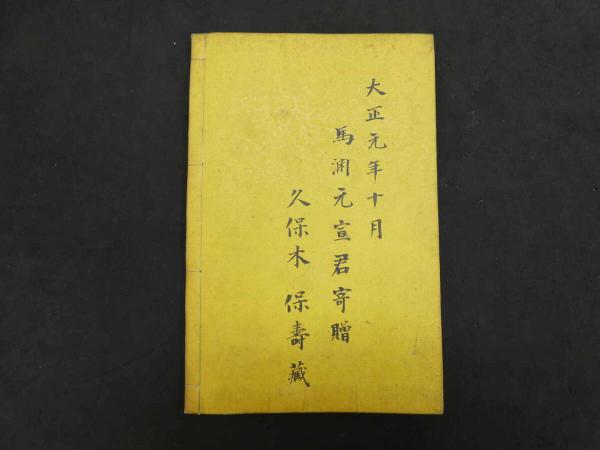 大正元年十月
馬渕元宣君寄贈
久保木保壽藏